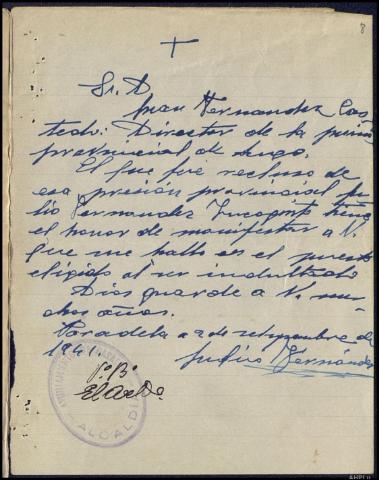 8
Sr. D
Juan Fernandez Cas
telo: Director de la prisión
provincial de Lugo.
El que fué recluso de
esa presión provincial Ju
lio Fernandez tiene
el honor de manifestar a V.
que me hallo en el puesto
elegido al ser indultado
Dios guarde a V. mu-
chos años.
Paradela a 2 de setyembre de
1941.
Julio Fernández
Vº Bº
El Alcalde
ALCALDIA
AHPLU